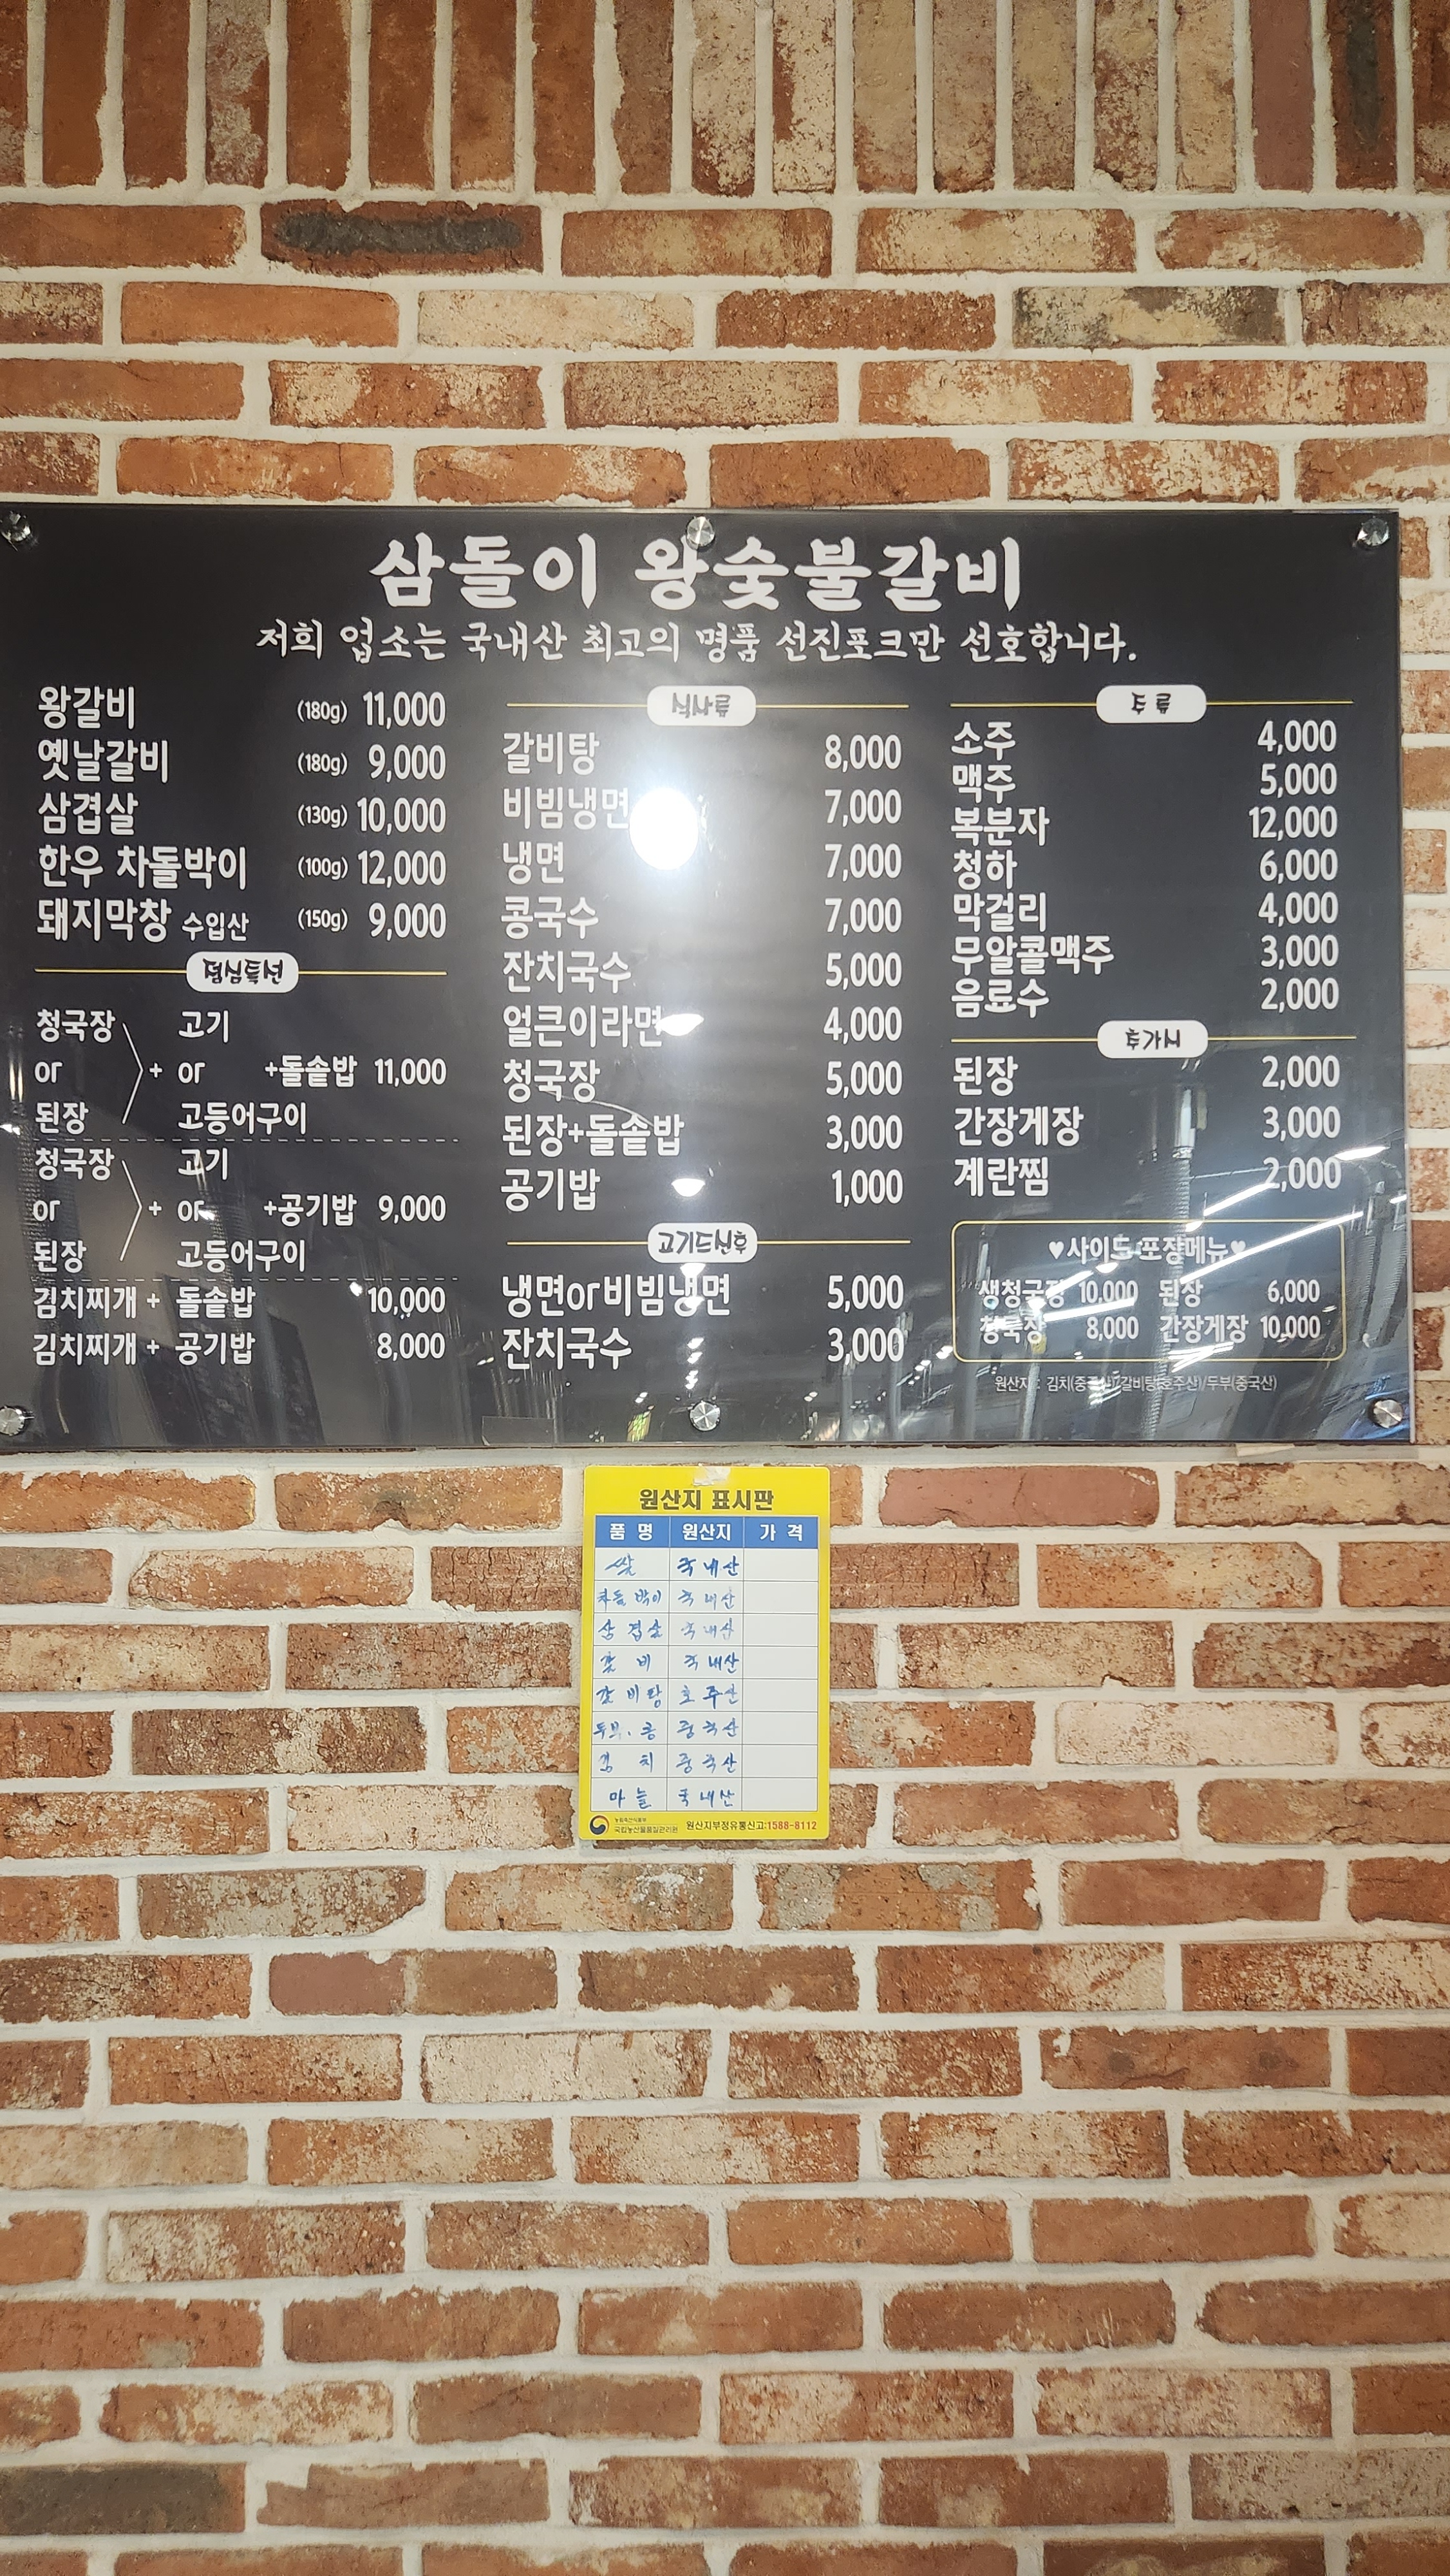 삼돌이 왕숯불갈비
저희 업소는 국내산 최고의 명품 선진포크만 선호합니다.
왕갈비 (180g) 11,000
옛날갈비 (180g) 9,000
삼겹살 (130g) 10,000
한우 차돌박이 (100g) 12,000
돼지막창 수입산 (150g) 9,000
점심특선
청국장 고기
or + or +돌솥밥 11,000
된장 고등어구이
청국장 고기
or + or +공기밥 9,000
된장 고등어구이
김치찌개 + 돌솥밥 10,000
김치찌개 + 공기밥 8,000
식사류
갈비탕 8,000
비빔냉면 7,000
냉면 7,000
콩국수 7,000
잔치국수 5,000
얼큰이라면 4,000
청국장 5,000
된장+돌솥밥 3,000
공기밥 1,000
고기드신후
냉면or비빔냉면 5,000
잔치국수 3,000
주류
소주 4,000
맥주 5,000
복분자 12,000
청하 6,000
막걸리 4,000
무알콜맥주 3,000
음료수 2,000
추가시
된장 2,000
간장게장 3,000
계란찜 2,000
♥사이드 포장메뉴♥
생청국장 10,000 된장 6,000
청국장 8,000 간장게장 10,000
원산지 : 김치(중국산)/갈비탕(호주산)/두부(중국산)
원산지 표시판
품 명 원산지 가 격
쌀 국내산
차돌박이 국내산
삼겹살 국내산
갈비 국내산
갈비탕 호주산
두부.콩 중국산
김치 중국산
마늘 국내산
농림축산식품부
국립농산물품질관리원 원산지부정유통신고:1588-8112